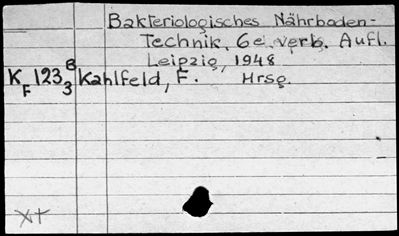 Bakteriologisches Nährboden-
Technik. 6e verb. Aufl.
Leipzig, 1948
K F 123 B 3 Kahlfeld, F. Hrsg.